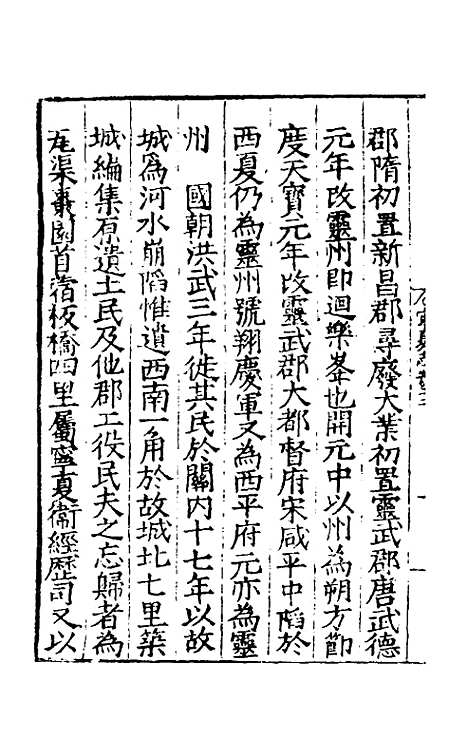 郡隋初置新昌郡尋廢大業初置靈武郡唐武德
元年改靈州即迴樂峯也開元中以州為朔方節
度天寶元年改靈武郡大都督府宋咸平中陷於
西夏仍為靈州號翔慶軍又為西平府元亦為靈
州　國朝洪武三年徙其民於關內十七年以故
城為河水崩陷惟遺西南一角於故城北七里築
城編集原遺土民及他郡工役民夫之忘歸者為
瓦渠棗園苜蓿板橋四里屬寧夏衛經歷司又以